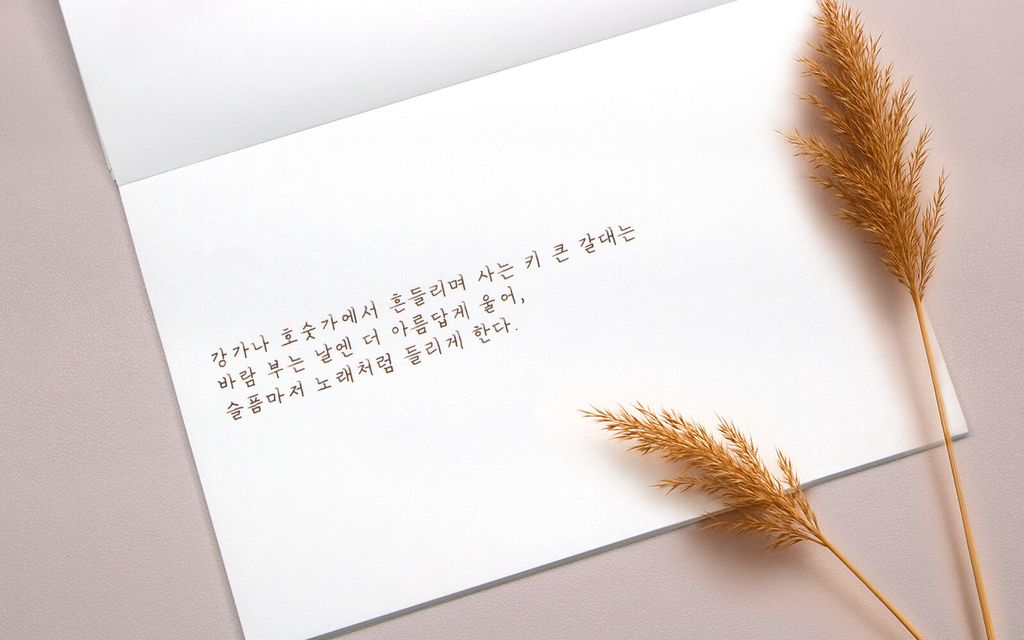 강가나 호숫가에서 흔들리며 사는 키 큰 갈대는
바람 부는 날엔 더 아름답게 울어,
슬픔마저 노래처럼 들리게 한다.